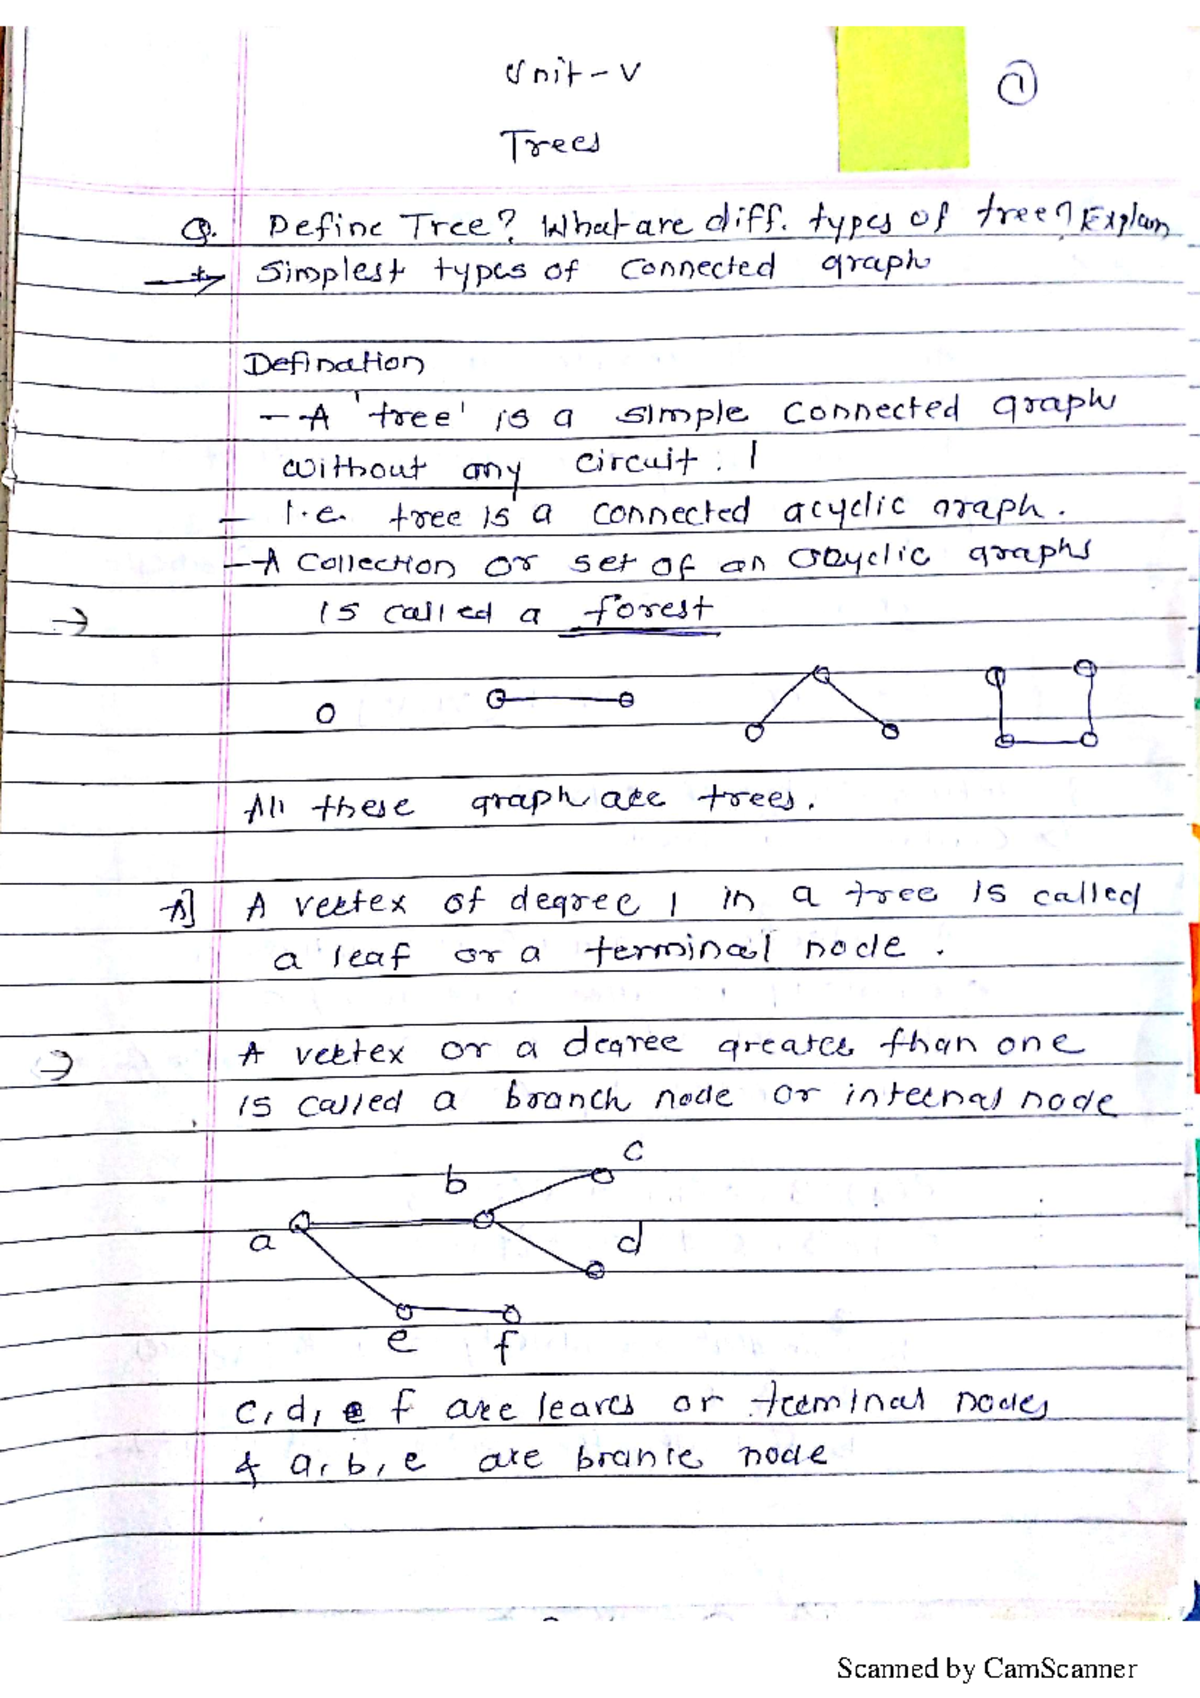 Unit - V
1
Trees
Q. Define Tree? What are diff. types of tree? Explain
→ Simplest types of connected graph
Defination
- A 'tree' is a simple connected graph
without any circuit.
- I.e. tree is a connected acyclic graph.
- A collection or set of an acyclic graphs
→ is called a forest
All these graph are trees.
A] A vertex of degree 1 in a tree is called
a leaf or a terminal node.
→ A vertex or a degree greater than one
is called a branch node or internal node
c
b
a
d
e f
c, d, f are leaves or terminal nodes
& a, b, e are branie node
Scanned by CamScanner